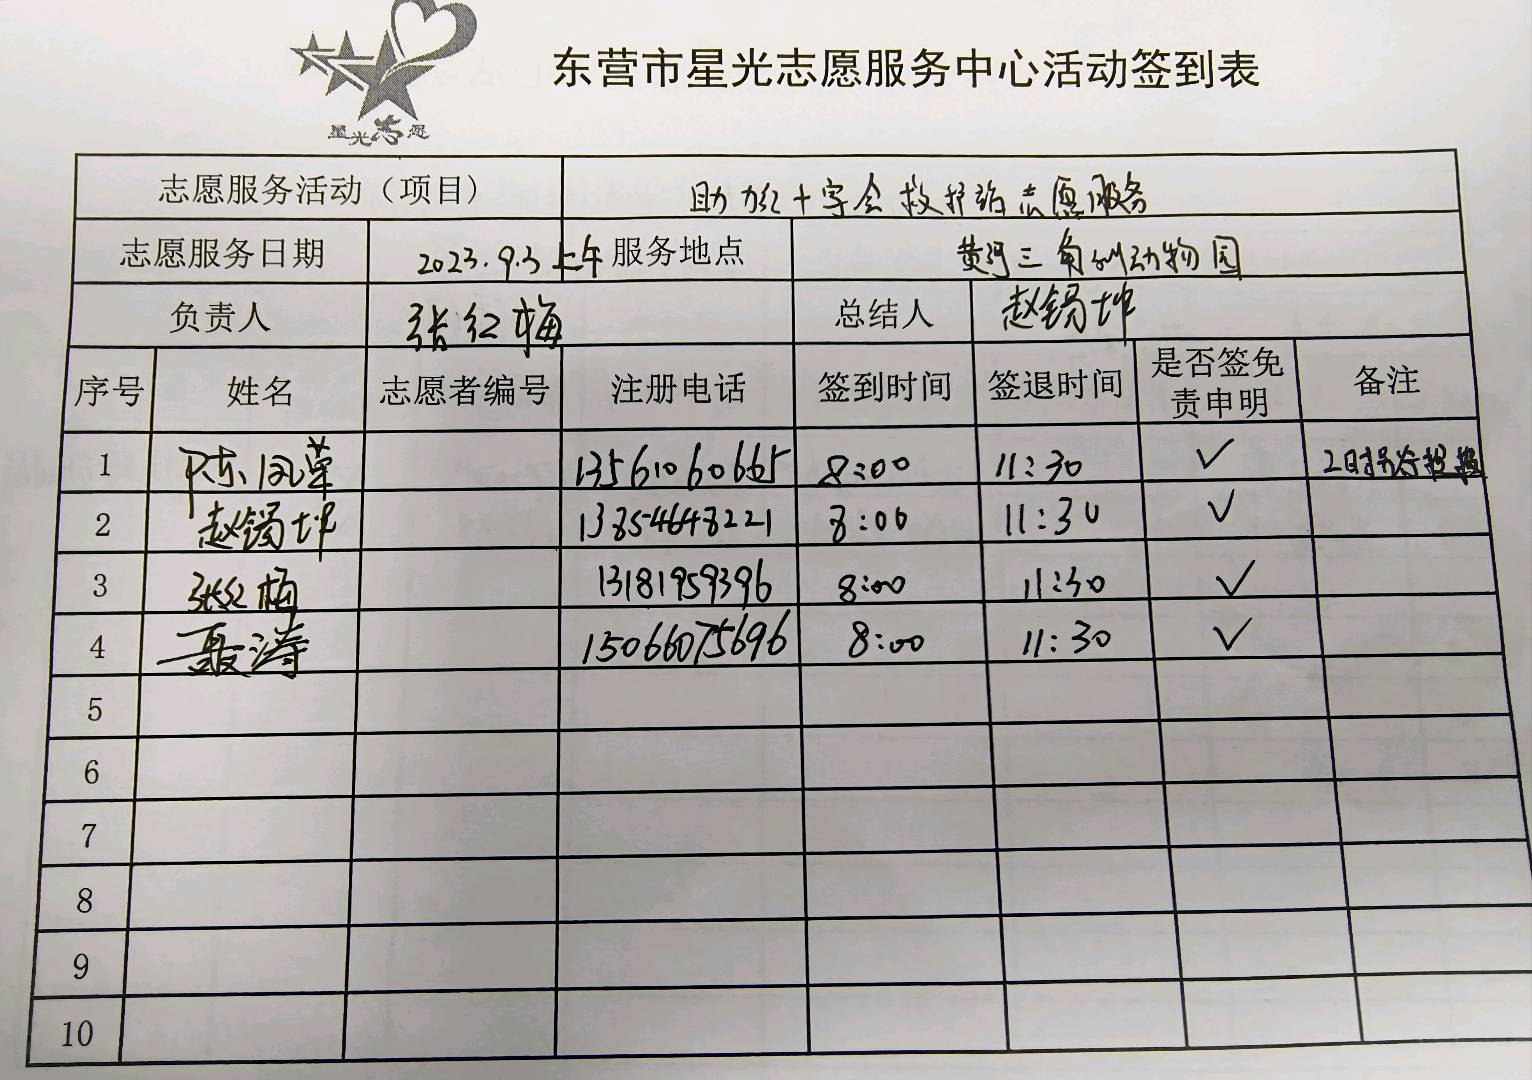 星光志愿
东营市星光志愿服务中心活动签到表
志愿服务活动（项目） 助力红十字会救护站志愿服务
志愿服务日期 2023.9.3上午 服务地点 黄河三角洲动物园
负责人 张红梅 总结人 赵锡坤
序号 姓名 志愿者编号 注册电话 签到时间 签退时间 是否签免责申明 备注
1 陈凤草 13561060665 8:00 11:30 ✓ 2时
2 赵锡坤 13854648221 8:00 11:30 ✓
3 张红梅 13181959396 8:00 11:30 ✓
4 聂涛 15066075696 8:00 11:30 ✓
5
6
7
8
9
10